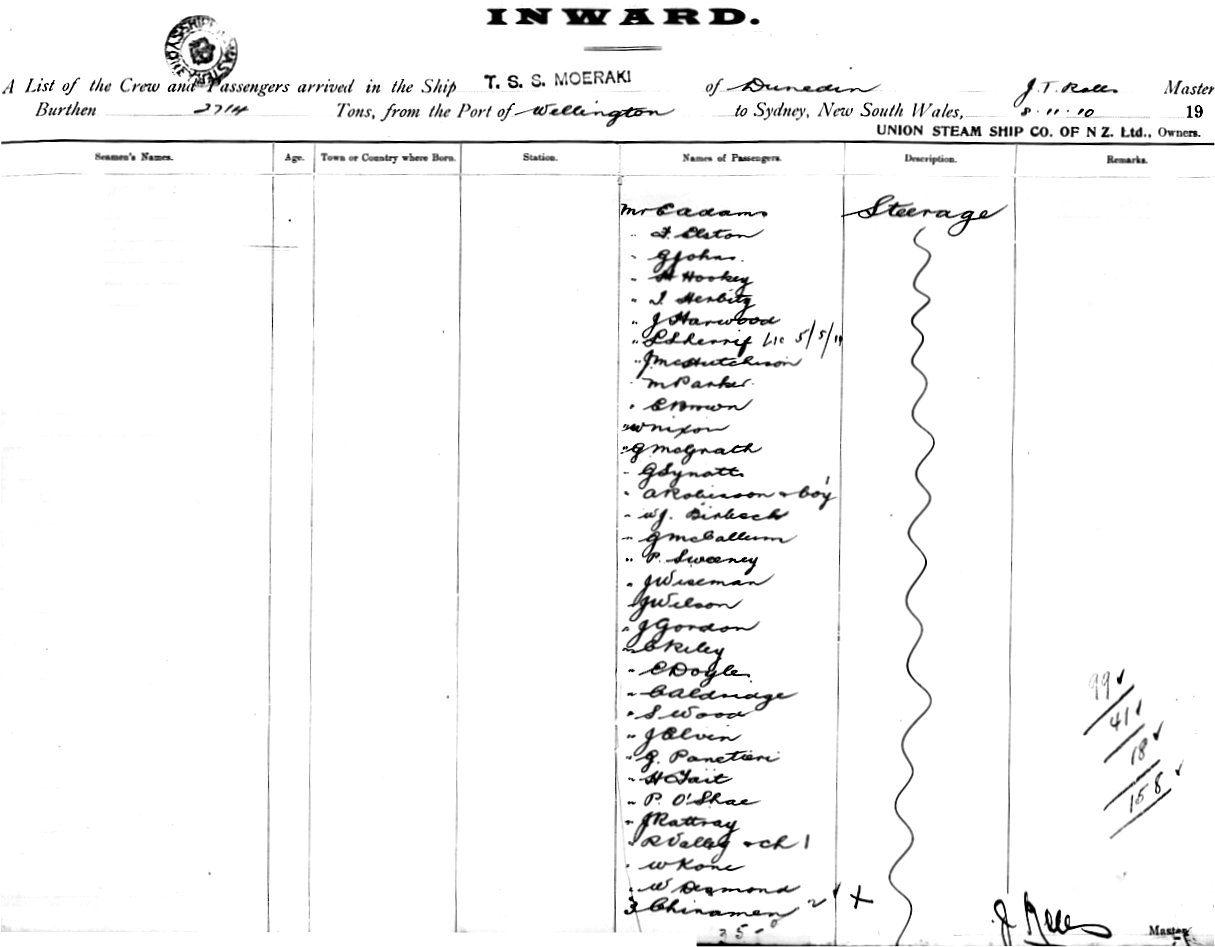 INWARD.
A List of the Crew and Passengers arrived in the Ship T. S. S. MOERAKI of Dunedin J. T. Rolls Master
Burthen 2714 Tons, from the Port of Wellington to Sydney, New South Wales, 8·11·10 19
UNION STEAM SHIP CO. OF N Z. Ltd., Owners.
Seamen's Names. Age. Town or Country where Born. Station. Names of Passengers. Description. Remarks.
Mr E Adams Steerage
" F. Elston
" G Johns
" H Hookey
" I. Herbitz
" J Harwood
" L Sherrif 5/5/11
" J McHutchison
" M Parker
" E Brown
" W Nixon
" G McGrath
" G Synatt
" A Robinson & boy 1
" W J.
" G McCallum
" P. Sweeney
" J Wiseman
" J Wilson
" J Gordon
" C Kiley
" E Doyle
" C Aldridge
" S Wood
" J Elvin
" G. Panetieri
" H Tait
" P. O'Shae
" J Rattray
" R & ch 1
" W Kone
" W Desmond
3 Chinamen 2 ✓ X
35
99 ✓
41 ✓
18 ✓
158 ✓
J Rolls Master